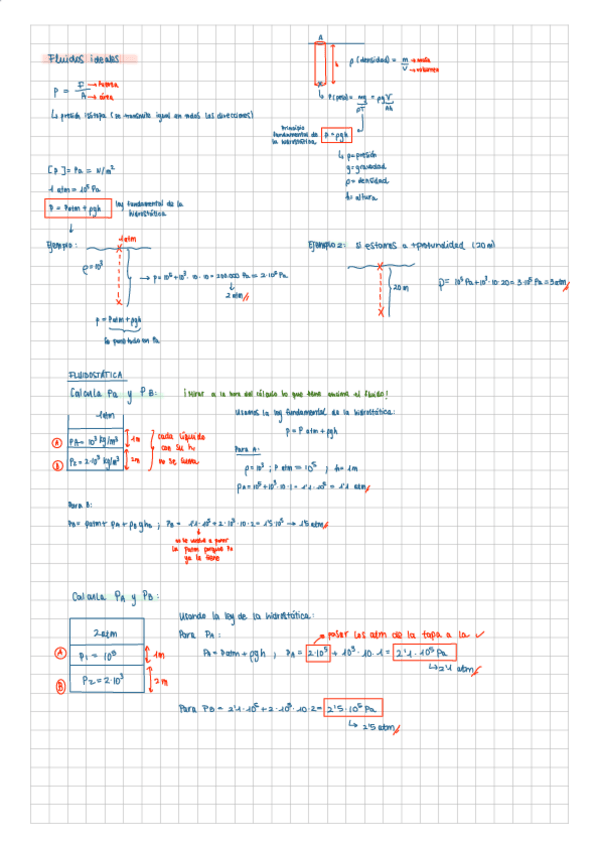 A
Fluidos ideales
h
ρ (densidad) = m → masa
V → volumen
P = F → fuerza
A → área
↳ P(peso) = mg = ρgV
Ah
↳ presión isótropa (se transmite igual en todas las direcciones)
Principio fundamental de la hidrostática
p = ρgh
↳ p = presión
g = gravedad
ρ = densidad
h = altura
[P] = Pa = N/m²
1 atm = 10⁵ Pa
P = Patm + ρgh
ley fundamental de la hidrostática
Ejemplo:
1 atm
ρ = 10³
→ p = 10⁵ + 10³ · 10 · 10 = 200.000 Pa = 2·10⁵ Pa
2 atm
p = Patm + ρgh
Ejemplo 2: Si estamos a + profundidad (20 m)
20 m
P = 10⁵ Pa + 10³ · 10 · 20 = 3·10⁵ Pa = 3 atm
FLUIDOSTÁTICA
Calcula Pa y PB:
¡Mirar a la hora del cálculo lo que tiene encima el fluido!
1 atm
A
ρA = 10³ kg/m³
1m
B
ρ2 = 2·10³ kg/m³
2m
cada líquido
con su h,
no se suma
Usamos la ley fundamental de la hidrostática:
p = P atm + ρgh
Para A:
ρ = 10³ ; P atm = 10⁵ ; h = 1m
PA = 10⁵ + 10³ · 10 · 1 = 1'1 · 10⁵ = 1'1 atm
Para B:
PB = patm + PA + ρB ghB ; PB = 1'1 · 10⁵ + 2 · 10³ · 10 · 2 = 1'5·10⁵ → 1'5 atm
no se vuelve a poner
la patm porque PA
ya la tiene
Calcula PA y PB:
Usando la ley de la hidrostática:
2 atm
Para PA:
→ pasar los atm de la tapa a la ✓
A
1m
PA = Patm + ρgh ; PA = 2·10⁵ + 10³ · 10 · 1 = 2'1 · 10⁵ Pa
↳ 2'1 atm
B
ρ2 = 2·10³
2 m
Para PB = 2'1 · 10⁵ + 2 · 10³ · 10 · 2 = 2'5 · 10⁵ Pa
↳ 2'5 atm